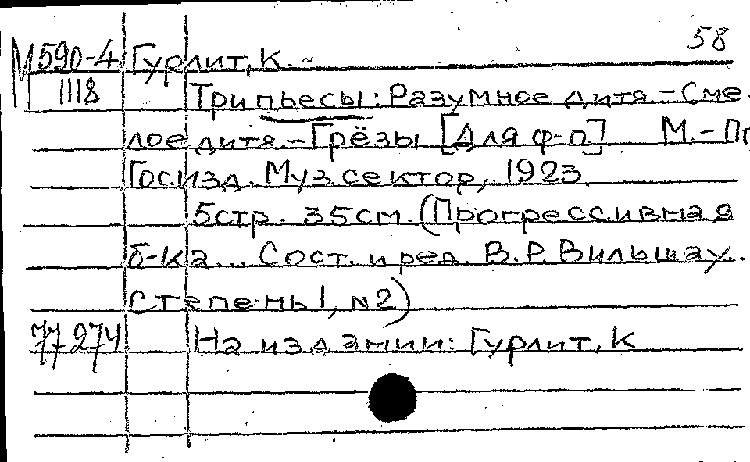 58
М590-4 Гурлит, К. -
1118 Три пьесы: Разумное дитя. - Сме-
лое дитя. - Грёзы [Для ф-п] М. - Пг
Госизд. Муз сектор, 1923
5стр. 35см. (Прогрессивная
б-ка... Сост. и ред. В.Р. Вильшау.
Степень 1, №2)
77274 На издании: Гурлит, К